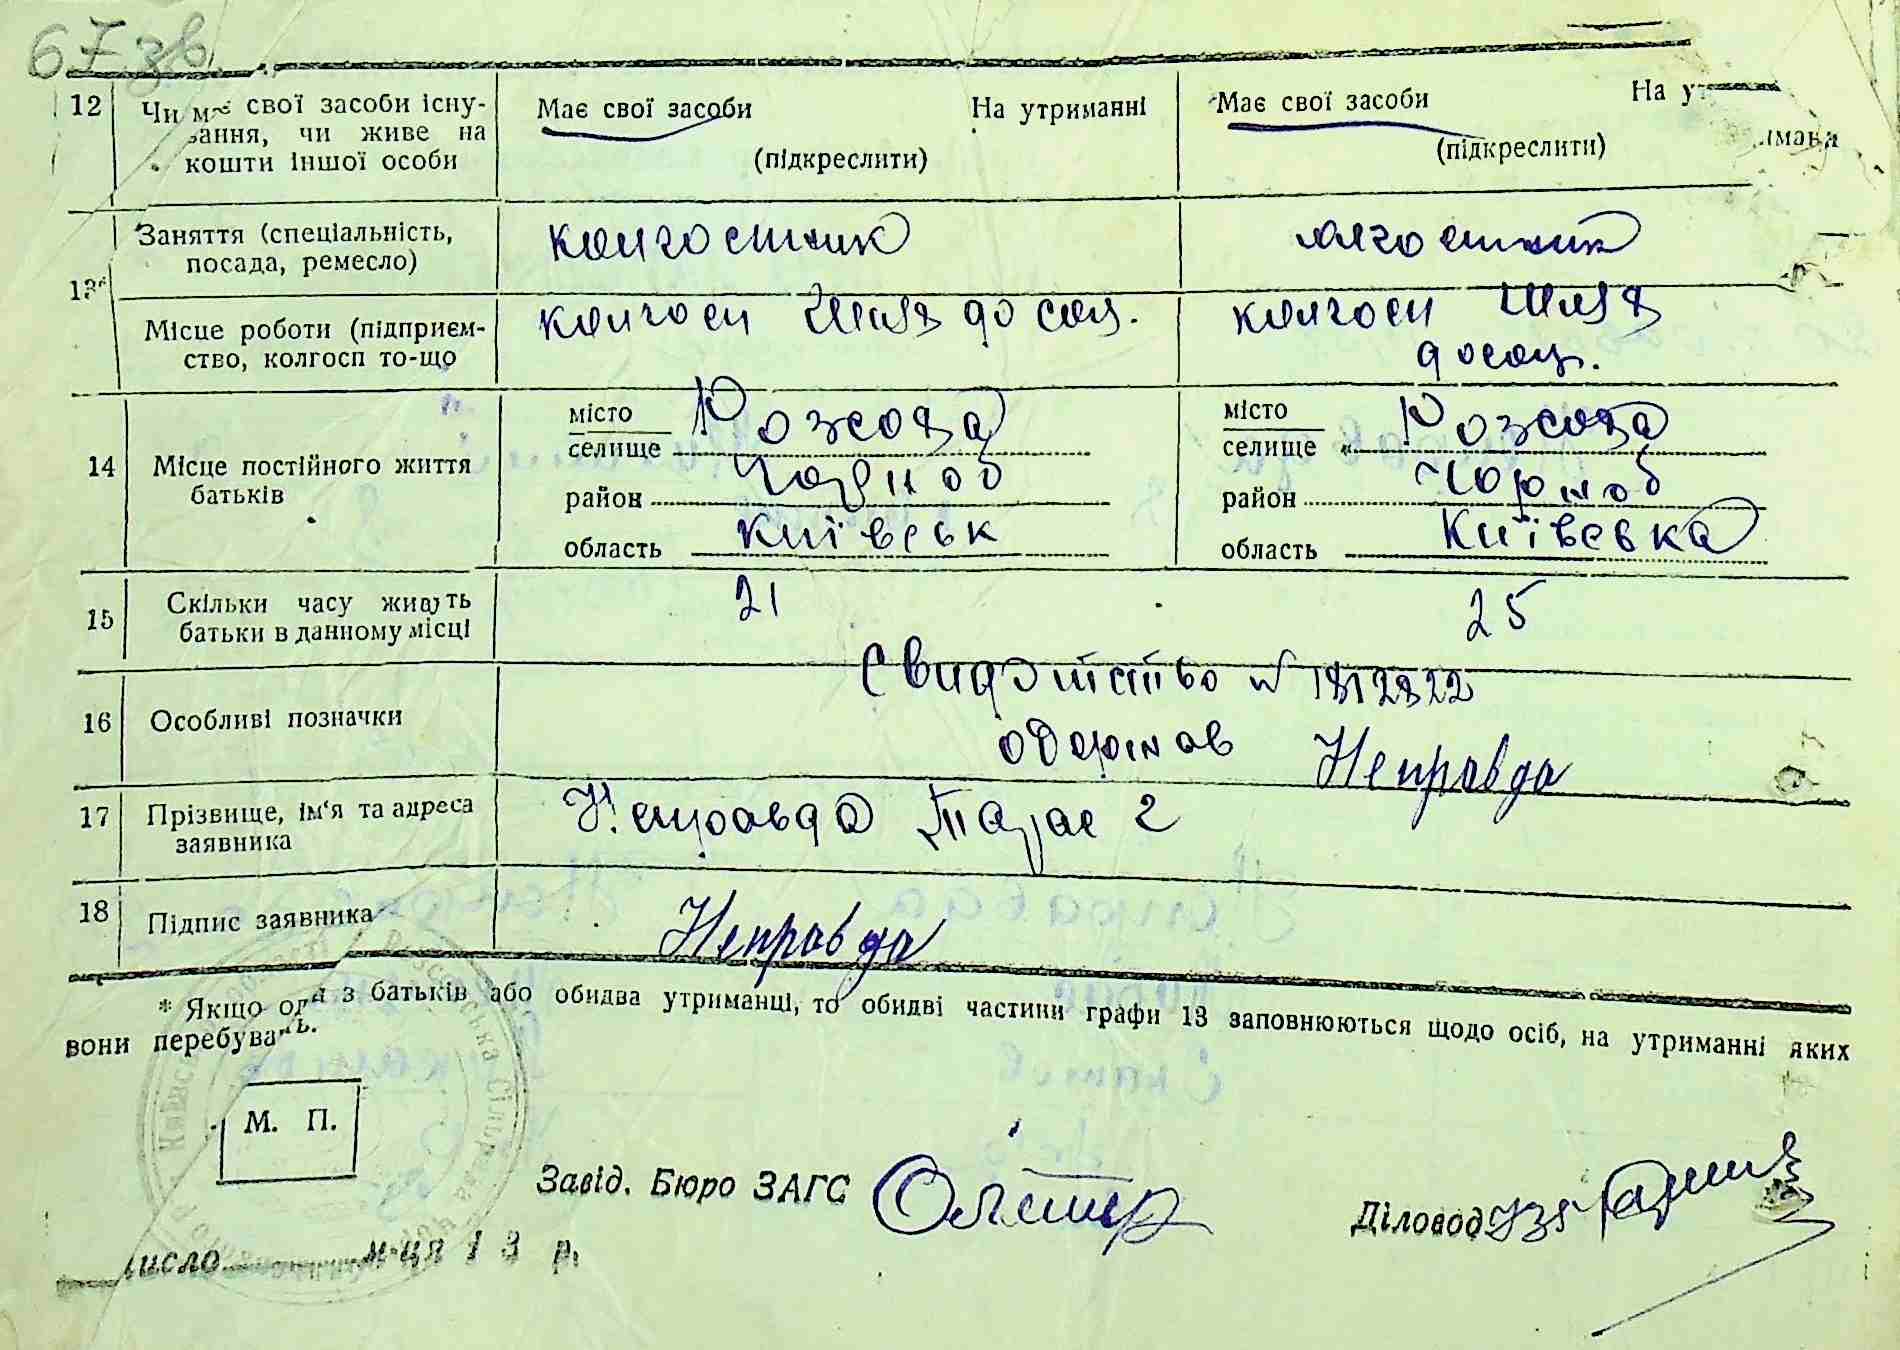 67 зв
12 Чи має свої засоби існу-
вання, чи живе на
кошти іншої особи
Має свої засоби На утриманні
(підкреслити)
Має свої засоби На ут
риманн
(підкреслити)
13* Заняття (спеціальність,
посада, ремесло)
колгоспник
олгоспник
Місце роботи (підприєм-
ство, колгосп то-що
колгосп Шлях до соц.
колгосп Шлях
до соц.
14 Місце постійного життя
батьків
місто
селище Розсоха
район Чорноб
область Київськ
місто
селище „ Розсоха
район Чорноб
область Київська
15 Скільки часу живуть
батьки в данному місці
21
25
16 Особливі позначки
Свидотство №
одержав Неправда
17 Прізвище, ім'я та адреса
заявника
Неправда Тарас Г
18 Підпис заявника
Неправда
* Якщо од з батьків або обидва утриманці, то обидві частини графи 13 заповнюються щодо осіб, на утриманні яких
вони перебувають.
М. П.
Завід. Бюро ЗАГС
Діловод
число м-ця 193 р.